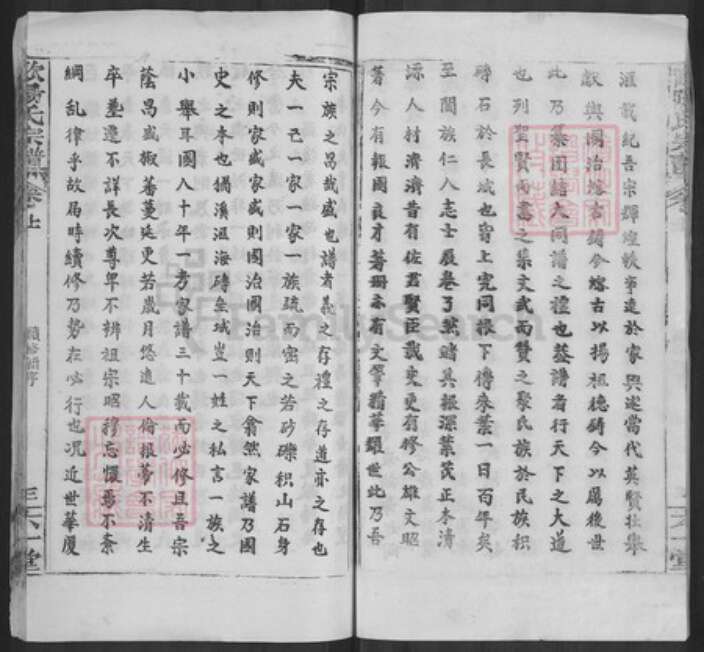 滙載紀吾宗輝煌軼事達於家興述當代英賢壯舉
獻與國治熔古鑄今熔古以揚祖德鑄今以勵後世
此乃集團結大同譜之禮也蓋譜者行天下之大道
也列聖賢而書之集文武而贊之聚氏族於民族積
磚石於長城也窮上究同根下傳來葉一日百年矣
至闔族仁人志士展卷了然睹其根深葉茂正本清
源人材濟濟昔有佐君賢臣哉史更有修公雄文昭
著今有報國良才著冊亦有文筆精華耀世此乃吾
宗族之昌哉盛也譜者義之存禮之存道亦之存也
夫一己一家一家一族疏而密之若砂礫積山石身
修則家盛家盛則國治國治則天下翕然家譜乃國
史之本也猶溪滙海磚壘城豈一姓之私言一族之
小舉耳國八十年一考家譜三十載而必修且吾宗
蔭昌盛椒蕃蔓延更若歲月悠遠人倫根蒂不清生
卒墓遷不詳長次尊卑不辨祖宗昭穆忘懼焉不紊
綱乱律乎故屆時續修乃勢在必行也况近世華厦
歐陽氏宗譜 卷上
續修譜序
三
六一堂
FamilySearch